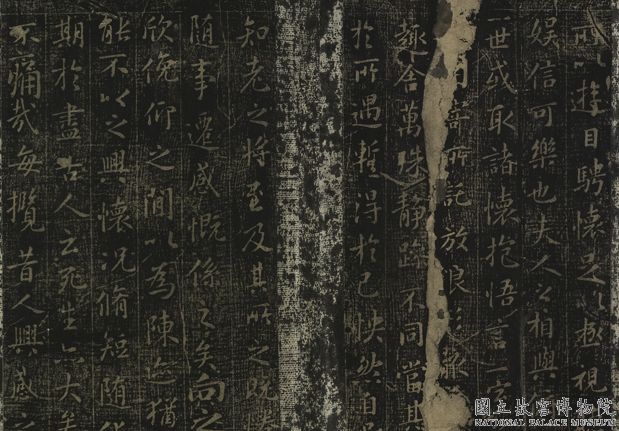 所以遊目騁懷足以極視
娛信可樂也夫人之相與
一世或取諸懷抱悟言一室
因寄所託放浪形骸
趣舍萬殊靜躁不同當其
於所遇暫得於己怏然自足
知老之將至及其所之既
隨事遷感慨係之矣向之
欣俛仰之閒以為陳迹猶
能不以之興懷況脩短隨化
期於盡古人云死生亦大矣
不痛哉每攬昔人興感之
國立故宮博物院
NATIONAL PALACE MUSEUM